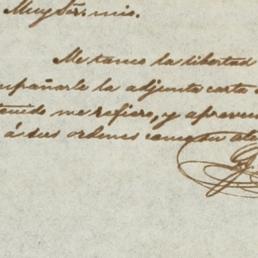 Muy Sr. mio.
Me tomo la libertad
mpañarle la adjunta carta
tenido me refiero, y aprovec
á sus ordenes como su